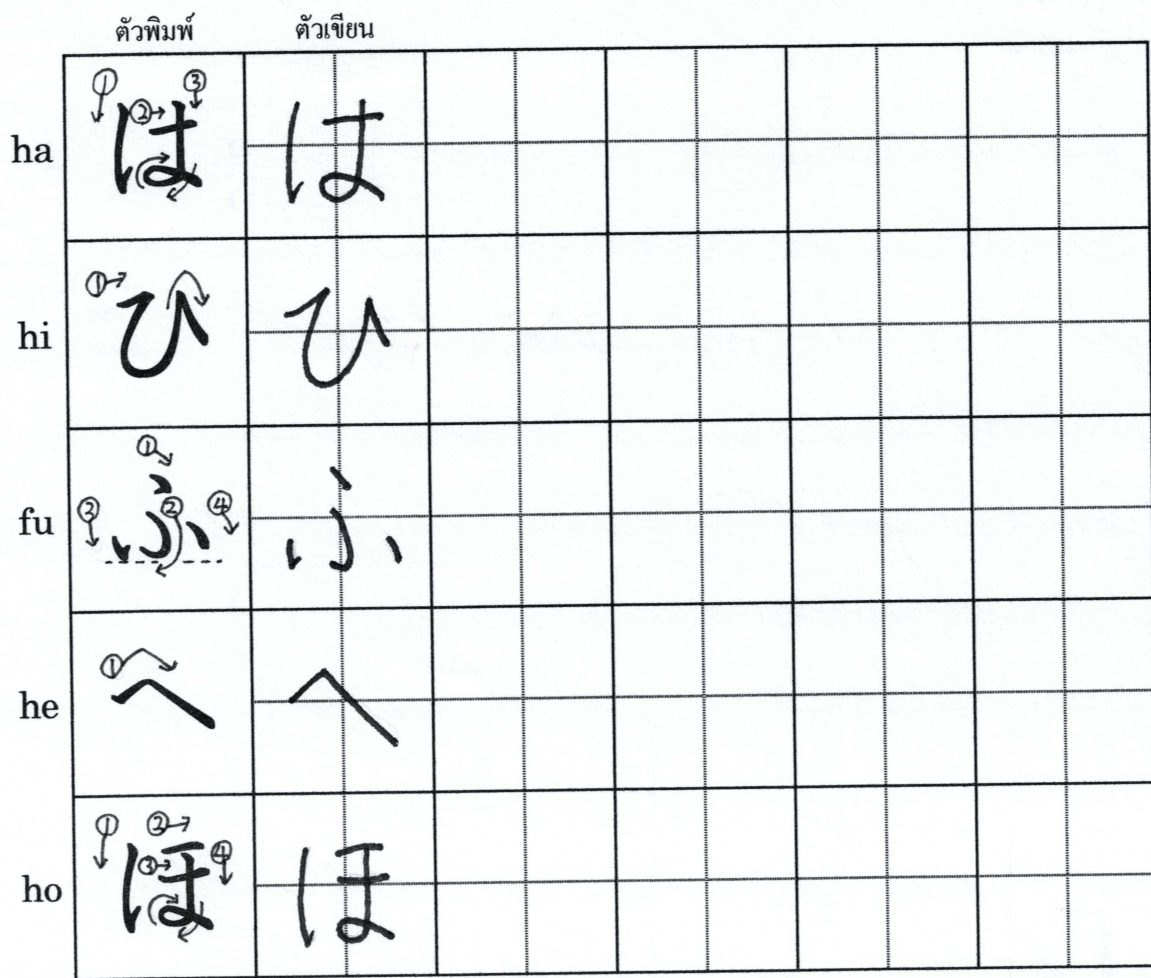 ตัวพิมพ์ ตัวเขียน
ha ① ② ③ は は
hi ① ひ ひ
fu ① ② ③ ④ ふ ふ
he ① へ へ
ho ① ② ③ ④ ほ ほ